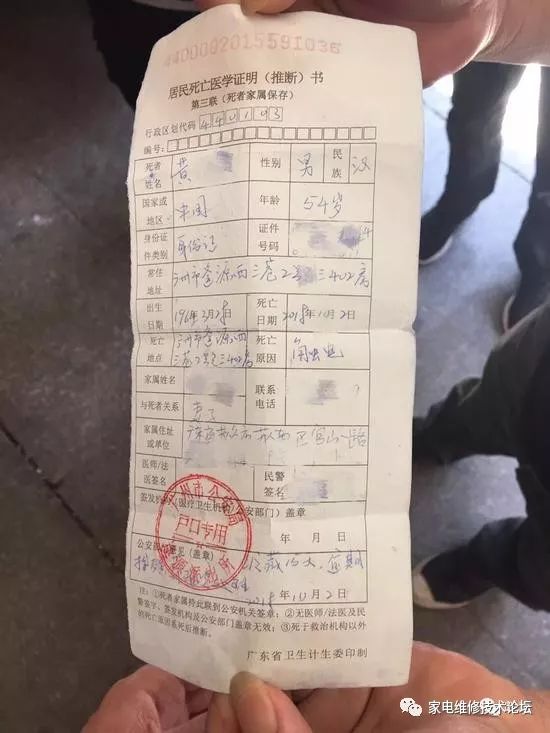 4400002015591036
居民死亡医学证明（推断）书
第三联（死者家属保存）
行政区划代码 440103
编号：
死者姓名 黄 性别 男 民族 汉
国家或地区 中国 年龄 54岁
身份证件类别 身份证 证件号码
常住地址 广州市 源西三巷2 402房
出生日期 196 年3月2 日 死亡日期 2018年10月2日
死亡地点 广州市 源西三巷2 402房 死亡原因 触电
家属姓名 联系电话
与死者关系 妻子
家属住址或单位 路
医师/法医签名 民警签名
签发机构（医疗卫生机构/公安部门）盖章
年 月 日
公安部门意见（盖章）
2018年10月2日
广州市公安局
户口专用
注：①死者家属持此联到公安机关签章；②无医师/法医及民
警签字、签发机构及公安部门盖章无效；③死于救治机构以外
的死亡原因系死后推断。
广东省卫生计生委印制
家电维修技术论坛